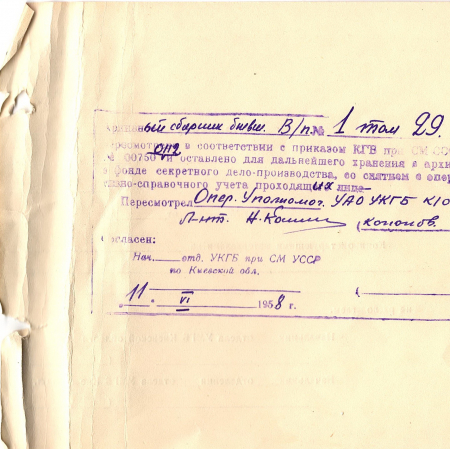 ый сборник бывш. В/п. № 1 том 29.
пересмотрен в соответствии с приказом КГБ при СМ СС
№ 00750 и оставлено для дальнейшего хранения в архи
в фонде секретного дело-производства, со снятием с опер
но-справочного учета проходящих лиц
Пересмотрел Опер. Уполномоч. УАО УКГБ К/О
Л-нт.
Согласен:
Нач. отд. УКГБ при СМ УССР
по Киевской обл.
11 VI 1958 г.